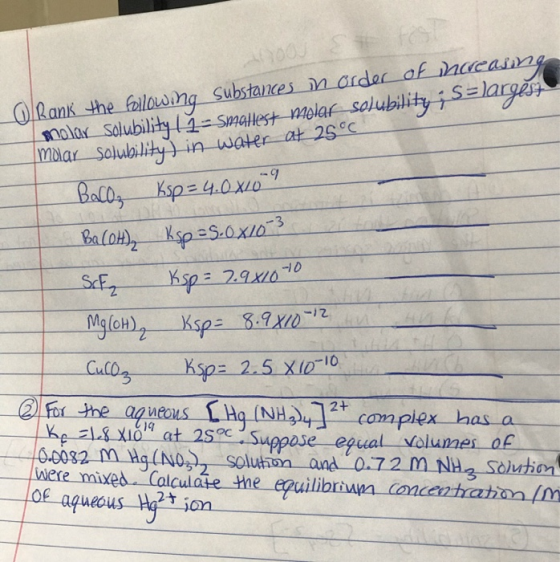 ① Rank the following substances in order of increasing
molar solubility (1 = smallest molar solubility ; 5 = largest
molar solubility) in water at 25°C
BaCO₃ Ksp = 4.0 x10⁻⁹
Ba(OH)₂ Ksp = 5.0 x10⁻³
ScF₂ Ksp = 7.9 x10⁻¹⁰
Mg(OH)₂ Ksp = 8.9 x10⁻¹²
CuCO₃ Ksp = 2.5 x10⁻¹⁰
② For the aqueous [Hg(NH₃)₄]²⁺ complex has a
Kf = 1.8 x10¹⁹ at 25°C. Suppose equal volumes of
0.0082 M Hg(NO₃)₂ solution and 0.72 M NH₃ solution
were mixed. Calculate the equilibrium concentration (m
of aqueous Hg²⁺ ion